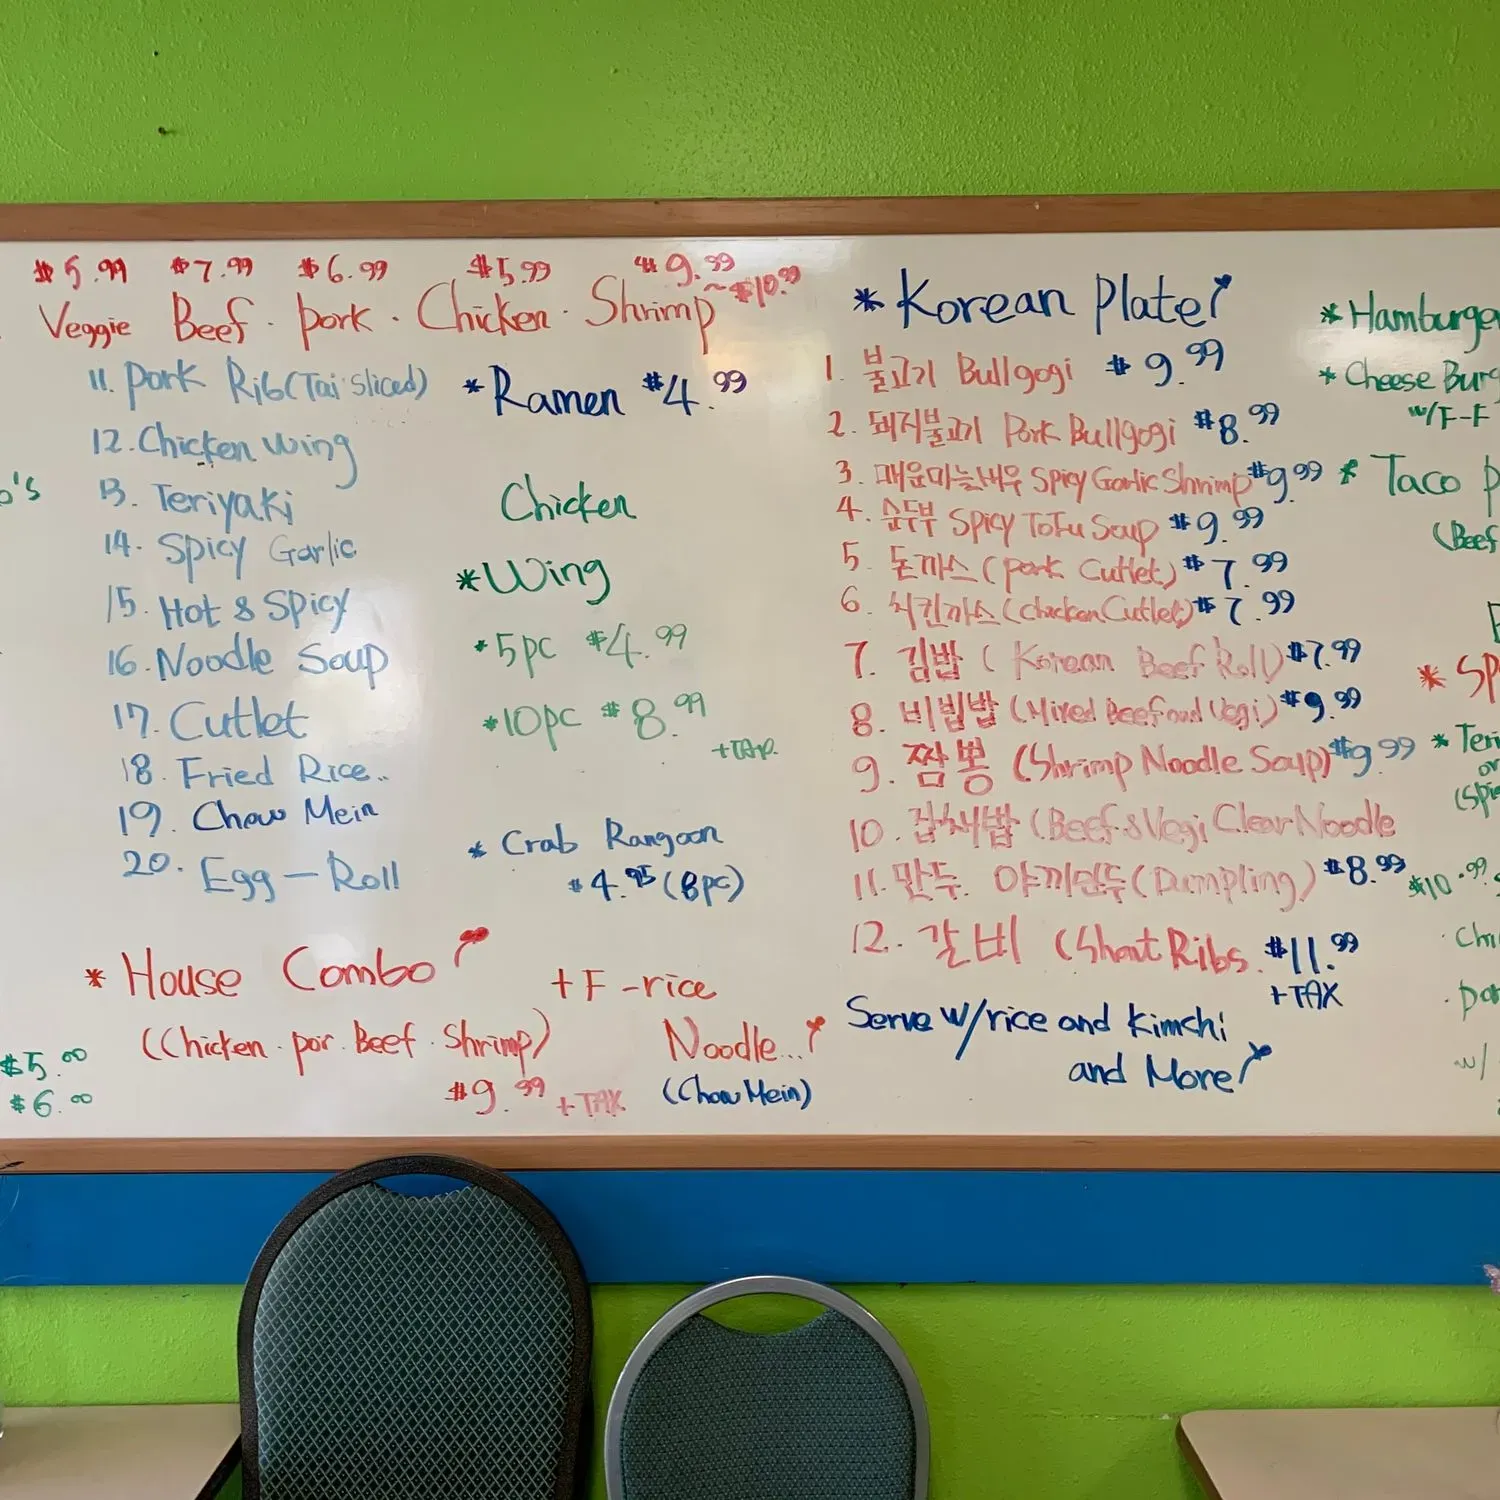 $5.99 $7.99 $6.99 $5.99 $9.99 ~$10.99
Veggie Beef · pork · Chicken · Shrimp
11. pork Rib (Tai sliced)
12. Chicken wing
13. Teriyaki
14. Spicy Garlic
15. Hot & Spicy
16. Noodle Soup
17. Cutlet
18. Fried Rice..
19. Chow Mein
20. Egg-Roll
* Ramen $4.99
Chicken
* Wing
* 5pc $4.99
* 10pc $8.99
* Crab Rangoon
$4.95 (8pc)
* House Combo!
+ F-rice
(Chicken · por · Beef · Shrimp)
Noodle...!
$9.99 + TAX
(Chow Mein)
o's
$5.00
$6.00
* Korean Plate!
1. 불고기 Bullgogi $9.99
2. 돼지불고기 Pork Bullgogi $8.99
3. 매운마늘새우 Spicy Garlic Shrimp $9.99
4. 순두부 Spicy ToFu Soup $9.99
5. 돈까스 (pork Cutlet) $7.99
6. 치킨까스 (chicken Cutlet) $7.99
7. 김밥 (Korean Beef Roll) $7.99
8. 비빔밥 (Mixed Beef and Vegi) $9.99
9. 짬뽕 (Shrimp Noodle Soup) $9.99
10. 잡채밥 (Beef & Vegi Clear Noodle
11. 만두. 야끼만두 (Dumpling) $8.99
12. 갈비 (Short Ribs $11.99
+TAX
Serve w/rice and kimchi
and More!
* Hamburge
* Cheese Burg
w/F-F
* Taco p
(Beef
* Sp
* Teri
or
(Spic
$10.99
· Chi
· por
w/